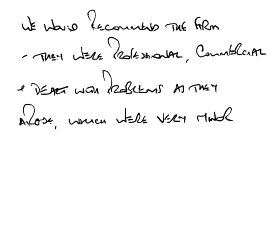 WE WOULD RECOMMEND THE FIRM
- THEY WERE PROFESSIONAL, COMMERCIAL
& DEALT WITH PROBLEMS AS THEY
AROSE, WHICH WERE VERY MINOR